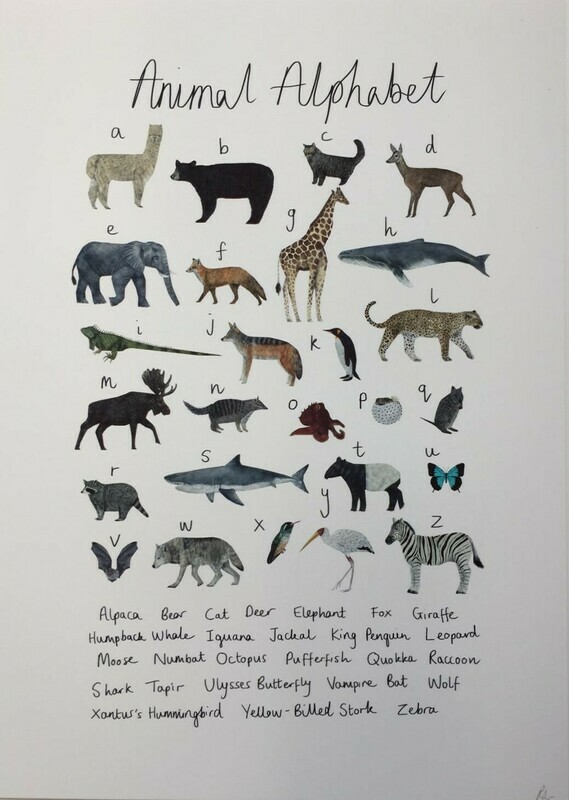 Animal Alphabet
a
b
c
d
e
f
g
h
i
j
k
l
m
n
o
p
q
r
s
t
u
v
w
x
y
z
Alpaca Bear Cat Deer Elephant Fox Giraffe
Humpback Whale Iguana Jackal King Penguin Leopard
Moose Numbat Octopus Pufferfish Quokka Raccoon
Shark Tapir Ulysses Butterfly Vampire Bat Wolf
Xantus's Hummingbird Yellow-Billed Stork Zebra